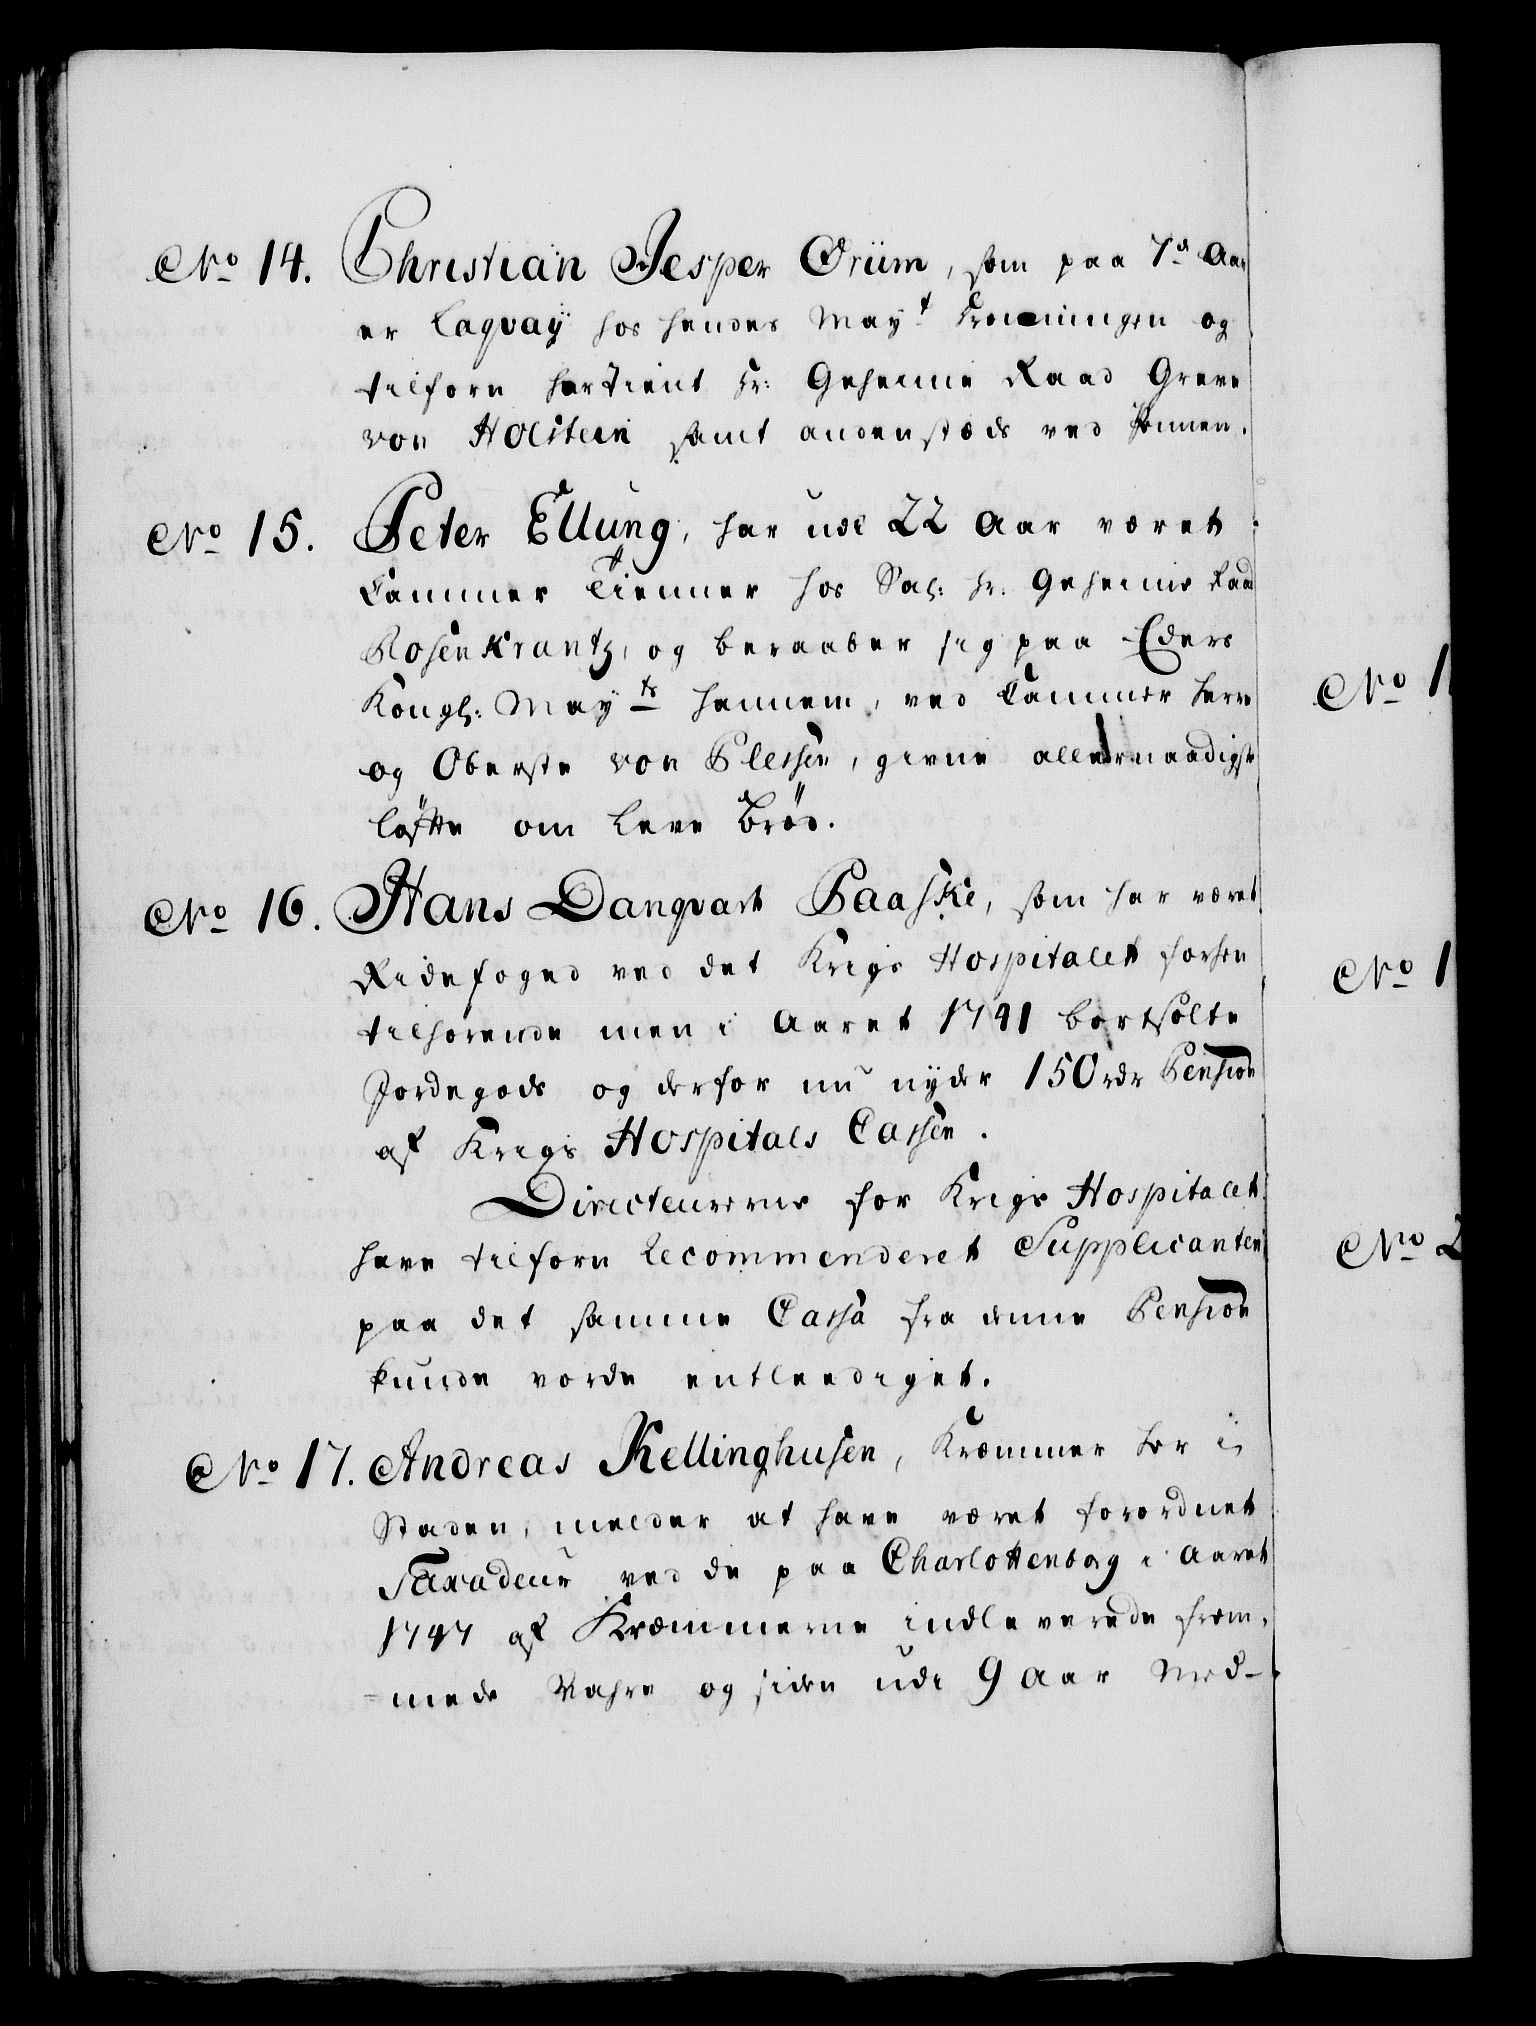 No 14. Christian Jesper Oriim, som paa 7de Aar
er Laqvaÿ hos Hendes Mayt Dronningen og
tilforn har tient Hr: Geheime Raad Greve
von Holstein samt andenstæds ved Pennen.
No 15. Peter Ellung, har udi 22 Aar været
Cammer Tienner hos Sal: Hr: Geheime Raad
Rosenkrantz, og beraaber sig paa Eders
Kongl: Mayts hannem, ved Cammer Herre
og Oberste von Plessen, givne allernaadigste
löfte om Leve Bröd.
No 16. Hans Danqvart Paaske, som har været
Ridefoged ved det Krigs Hospitalet forhen
tilhörende men i Aaret 1741 bortsolte
Jordegods og derfor nu nÿder 150 rdr Pension
af Krigs Hospitals Cassen.
Directeurerne for Krigs Hospitalet
have tilforn Recommenderet Supplicanten
paa det samme Cassa fra denne Pension
kunde vorde entleediget.
No 17. Andreas Kellinghusen, Kræmmer her i
Staden, melder at have været forordnet
Taxadeur ved de paa Charlottenborg i Aaret
1747 af Kræmmerne indleverede frem,
=mede Vahre og siden udi 9 Aar Med-
No 1
No 1
No 2